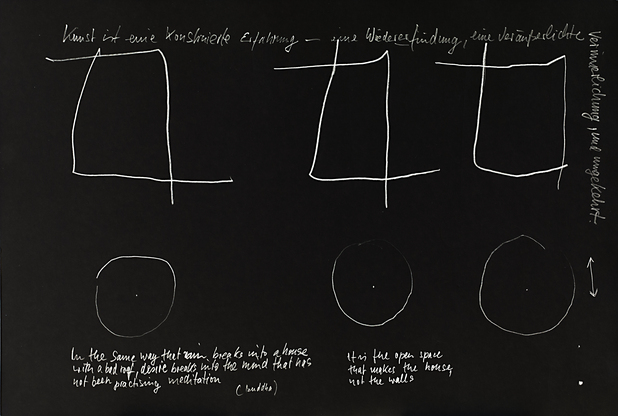 Kunst ist eine konstruierte Erfahrung – eine Wiedererfindung, eine veräußerlichte
Verinnerlichung, und umgekehrt.
In the same way that rain breaks into a house
with a bad roof, desire breaks into the mind that has
not been practising meditation
(buddha)
It is the open space
that makes the house,
not the walls